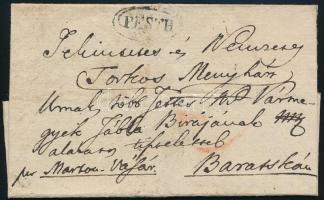 PESTH
Tekintetes és Nemzetes
Torkos Menyhárt
Urnak, több Tettes Ns Várme-
gyék Tábla Birájának
alázatos tisztelettel
per Marton-Vásár. Baratskán